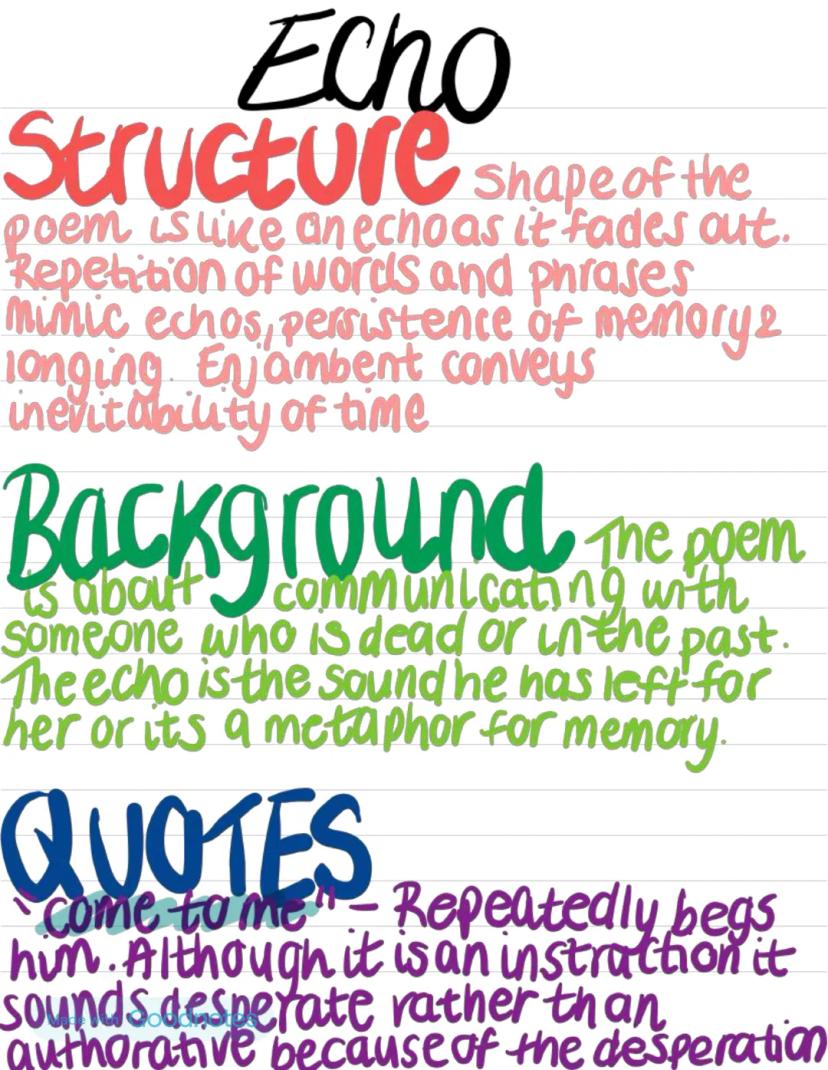 Echo
Structure Shape of the
poem is like an echo as it fades out.
Repetition of words and phrases
mimic echos, persistence of memory &
longing. Enjambent conveys
inevitability of time
Background The poem
is about communicating with
someone who is dead or in the past.
The echo is the sound he has left for
her or its a metaphor for memory.
QUOTES
"come to me" – Repeatedly begs
him. Although it is an instraction it
sounds desperate rather than
Made with Goodnotes
authorative because of the desperation